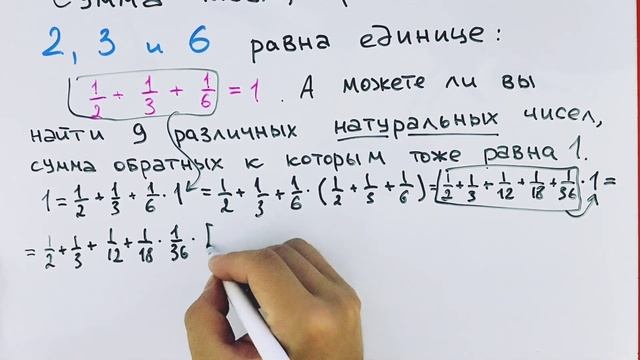 Сумма
2, 3 и 6 равна единице:
1/2 + 1/3 + 1/6 = 1. А можете ли вы
найти 9 различных натуральных чисел,
сумма обратных к которым тоже равна 1.
1 = 1/2 + 1/3 + 1/6 · 1 = 1/2 + 1/3 + 1/6 · (1/2 + 1/3 + 1/6) = 1/2 + 1/3 + 1/12 + 1/18 + 1/36 · 1 =
= 1/2 + 1/3 + 1/12 + 1/18 · 1/36 · [